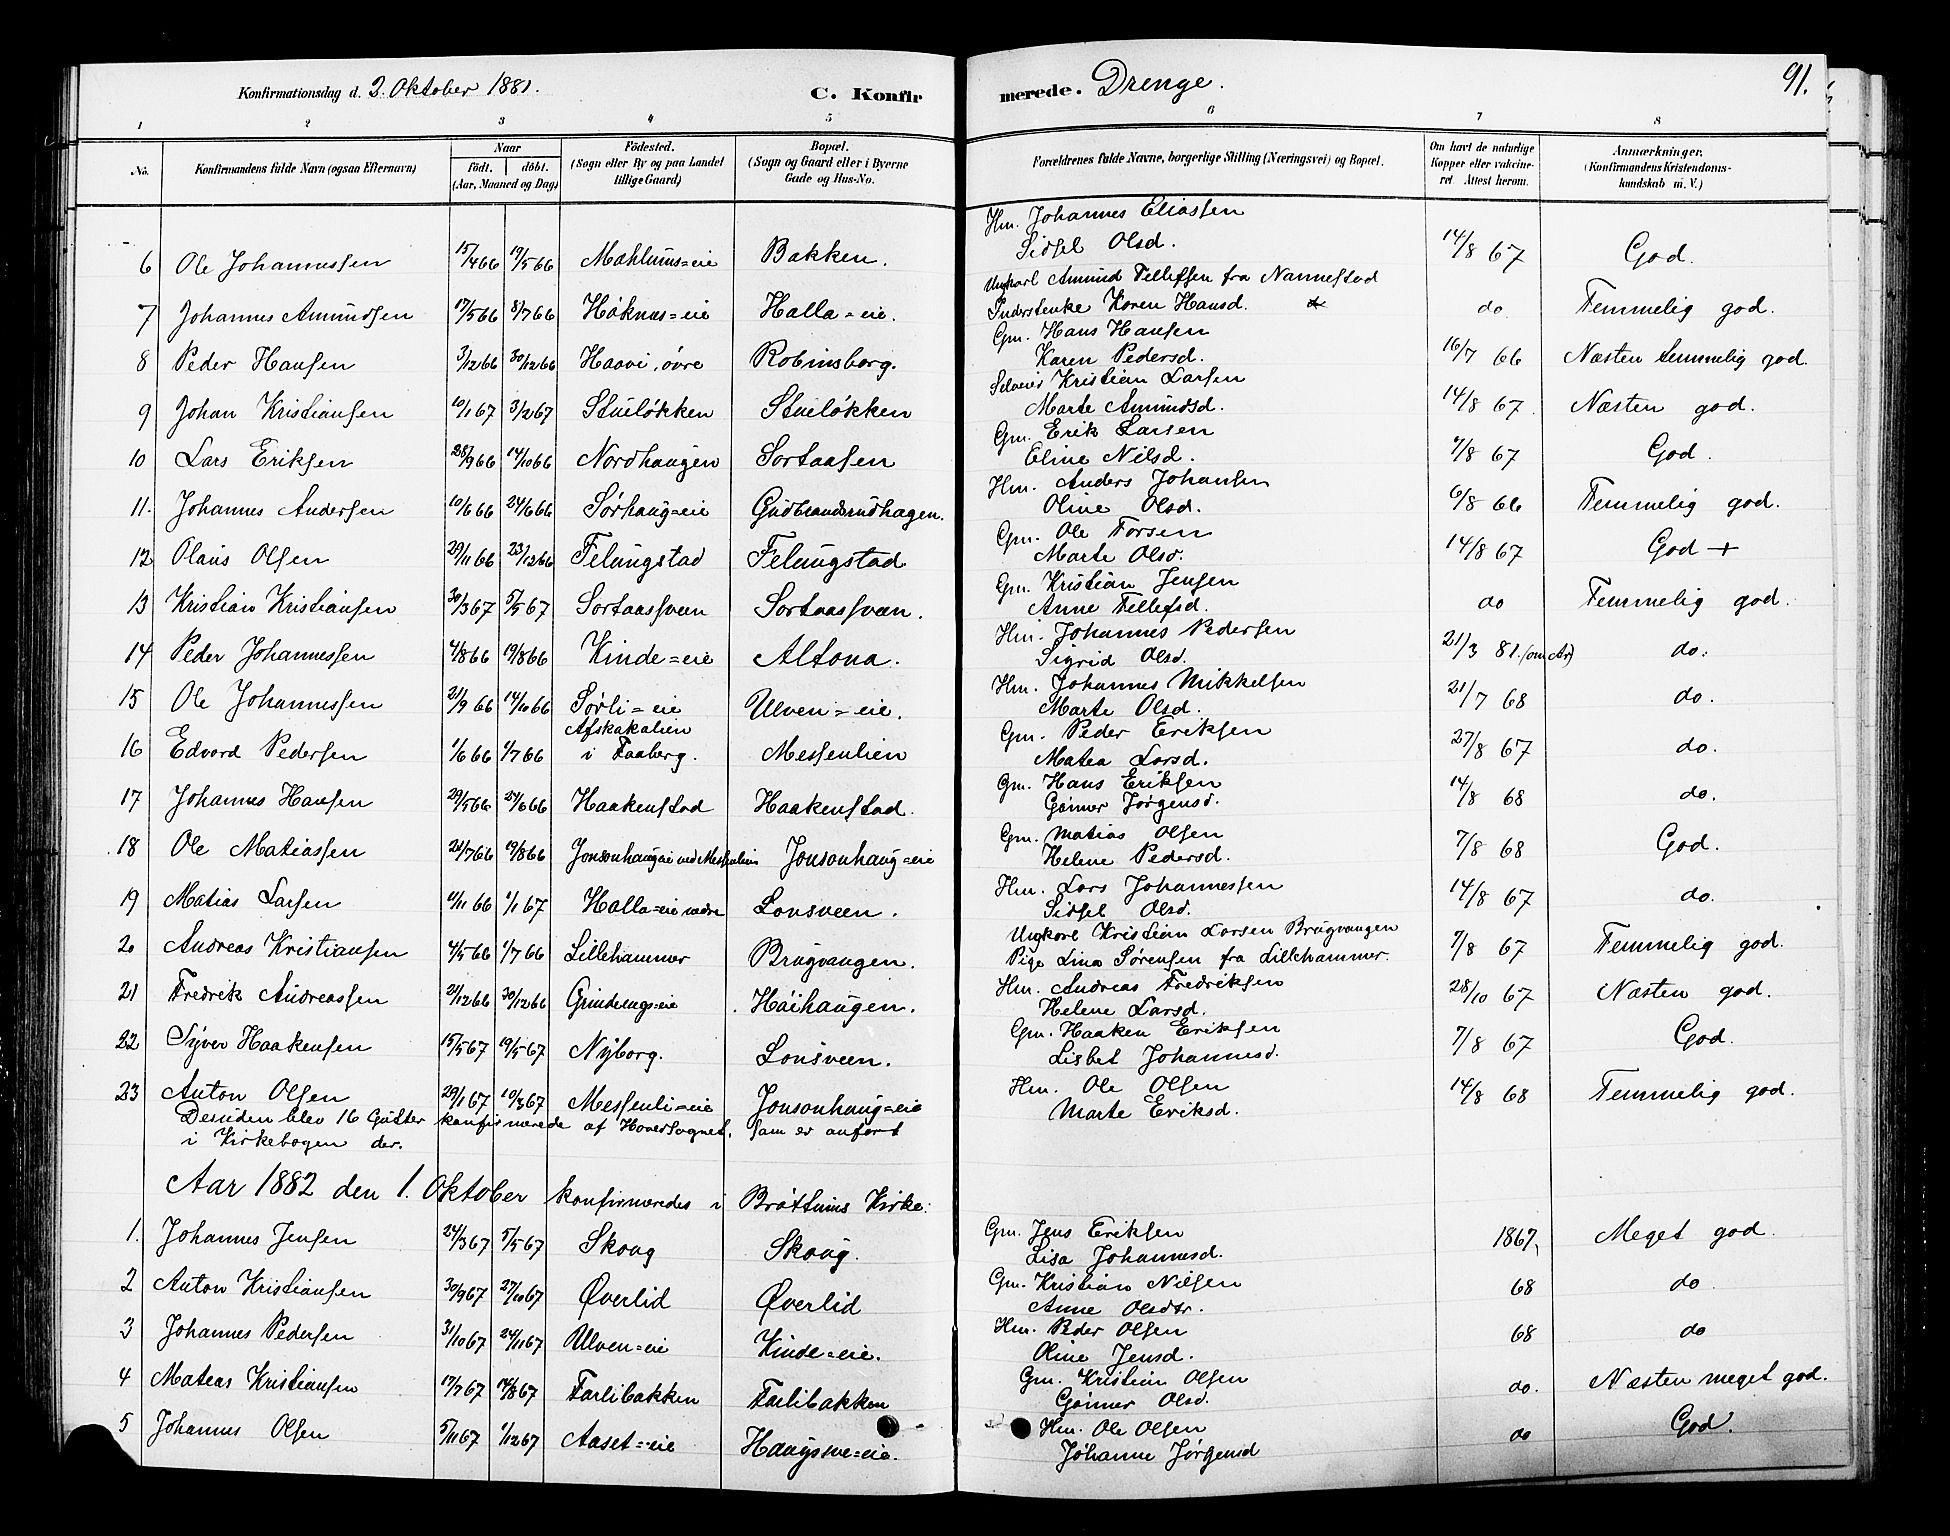 Konfirmationsdag d. 2. Oktober 1881. C. Konfirmerede. Drenge. 91.
1 2 3 4 5 6 7 8
No. Konfirmandens fulde Navn (ogsaa Efternavn) Naar födt. döbt. (Aar, Maaned og Dag) Födested. (Sogn eller By og paa Landet tillige Gaard) Bopæl. (Sogn og Gaard eller i Byerne Gade og Hus-No. Forældrenes fulde Navne, borgerlige Stilling (Næringsvei) og Bopæl. Om havt de naturlige Kopper eller vakcineret Attest herom. Anmærkninger, (Konfirmandens Kristendomskundskab m. V.)
6 Ole Johannessen 15/4 66 19/5 66 Mæhlums=eie Bakken. Hm. Johannes Eliassen Sidsel Olsd. 14/8 67 God.
7 Johannes Amundsen 17/5 66 8/7 66 Haknæs=eie Halla=eie. Ungkarl Amund Tellefsen fra Nannestad Inderstenke Karen Hansd. do Temmelig god.
8 Peder Hansen 3/12 66 30/12 66 Haavi, övre Robinsborg. Gm. Hans Hansen Karen Pedersd. 16/7 66 Næsten temmelig god.
9 Johan Kristiansen 10/1 67 3/2 67 Stuelökken Stuelökken Selveier Kristian Larsen Marte Amundsd. 14/8 67. Næsten god.
10 Lars Eriksen 28/9 66 14/10 66 Nordhaugen Sortaasen Gm. Erik Larsen Eline Nilsd. 7/8 67 God.
11. Johannes Andersen 10/6 66 24/6 66 Sørhaug=eie Gudbrandsrudhagen. Hm. Anders Johansen Oline Olsd. 6/8 66 Temmelig god.
12 Olaus Olsen 29/11 66 23/12 66 Felungstad Felungstad Gm. Ole Torsen Marte Olsd. 14/8 67 God +
13 Kristian Kristiansen 30/3 67 5/5 67 Sortaassveen Sortaassveen. Gm. Kristian Jensen Anne Tellefsd. do Temmelig god.
14 Peder Johannessen 4/8 66 19/8 66 Kinde=eie Altona. Hm. Johannes Pedersen Sigrid Olsd. 21/3 81. (om Ar) do.
15 Ole Johannessen 21/9 66 14/10 66 Sørli=eie Ulven=eie. Hm. Johannes Mikkelsen Marte Olsd. 21/7 68 do.
16 Edvard Pedersen 1/6 66 1/7 66 Afskakalien i Faaberg. Messenlien Gm. Peder Eriksen Matea Larsd. 27/8 67 do.
17 Johannes Hansen 29/5 66 24/6 66 Haakenstad Haakenstad. Gm. Hans Eriksen Gönner Jørgensd. 14/8 68 do.
18 Ole Matiassen 24/7 66 19/8 66 Jonsonhaug=eie ved Messenlien Jonsonhaug=eie Gm. Matias Olsen Helene Pedersd. 7/8 68 God.
19 Matias Larsen 11/11 66 1/1 67 Halla=eie nedre Lonsveen. Hm. Lars Johannessen Sidsel Olsd. 14/8 67 do.
20 Andreas Kristiansen 4/5 66 1/7 66 Lillehammer Brugvangen. Ungkarl Kristian Larsen Brugvangen Pige Lina Sørensen fra Lillehammer. 7/8 67 Temmelig god.
21 Fredrik Andreassen 21/12 66 30/12 66 Grindengs=eie Häihaugen. Hm. Andreas Fredriksen Helene Larsd. 28/10 67 Næsten god.
22 Syver Haakensen 15/5 67 19/5 67 Nyborg. Lonsveen. Gm. Haaken Eriksen Lisbet Johannesd. 7/8 67 God.
23 Anton Olsen 29/1 67 10/3 67 Messenli=eie Jonsonhaug=eie Hm. Ole Olsen Marte Eriksd. 14/8 68 Temmelig god.
Desuden blev 16 Gutter konfirmerede af Hovedsognet, som er anført
i Kirkebogen der.
Aar 1882 den 1. Oktober konfirmeredes i Bröttums Kirke:
1. Johannes Jensen 24/3 67 5/5 67 Skoug Skoug. Gm. Jens Eriksen Lisa Johannesd. 1867, Meget god.
2 Anton Kristiansen 30/9 67 27/10 67 Øverlid Øverlid Gm. Kristian Nilsen Anne Olsdtr. 68 do
3 Johannes Pedersen 31/10 67 24/11 67 Ulven=eie Kinde=eie. Hm. Peder Olsen Oline Jensd. 68 do
4 Mateas Kristiansen 17/7 67 14/8 67 Farlibakken Farlibakken Gm. Kristian Olsen Gönner Olsd. do. Næsten meget god.
5 Johannes Olsen 5/11 67 1/12 67 Aaset=eie Haugsve=eie. Hm. Ole Olsen Johanne Jørgensd do God.